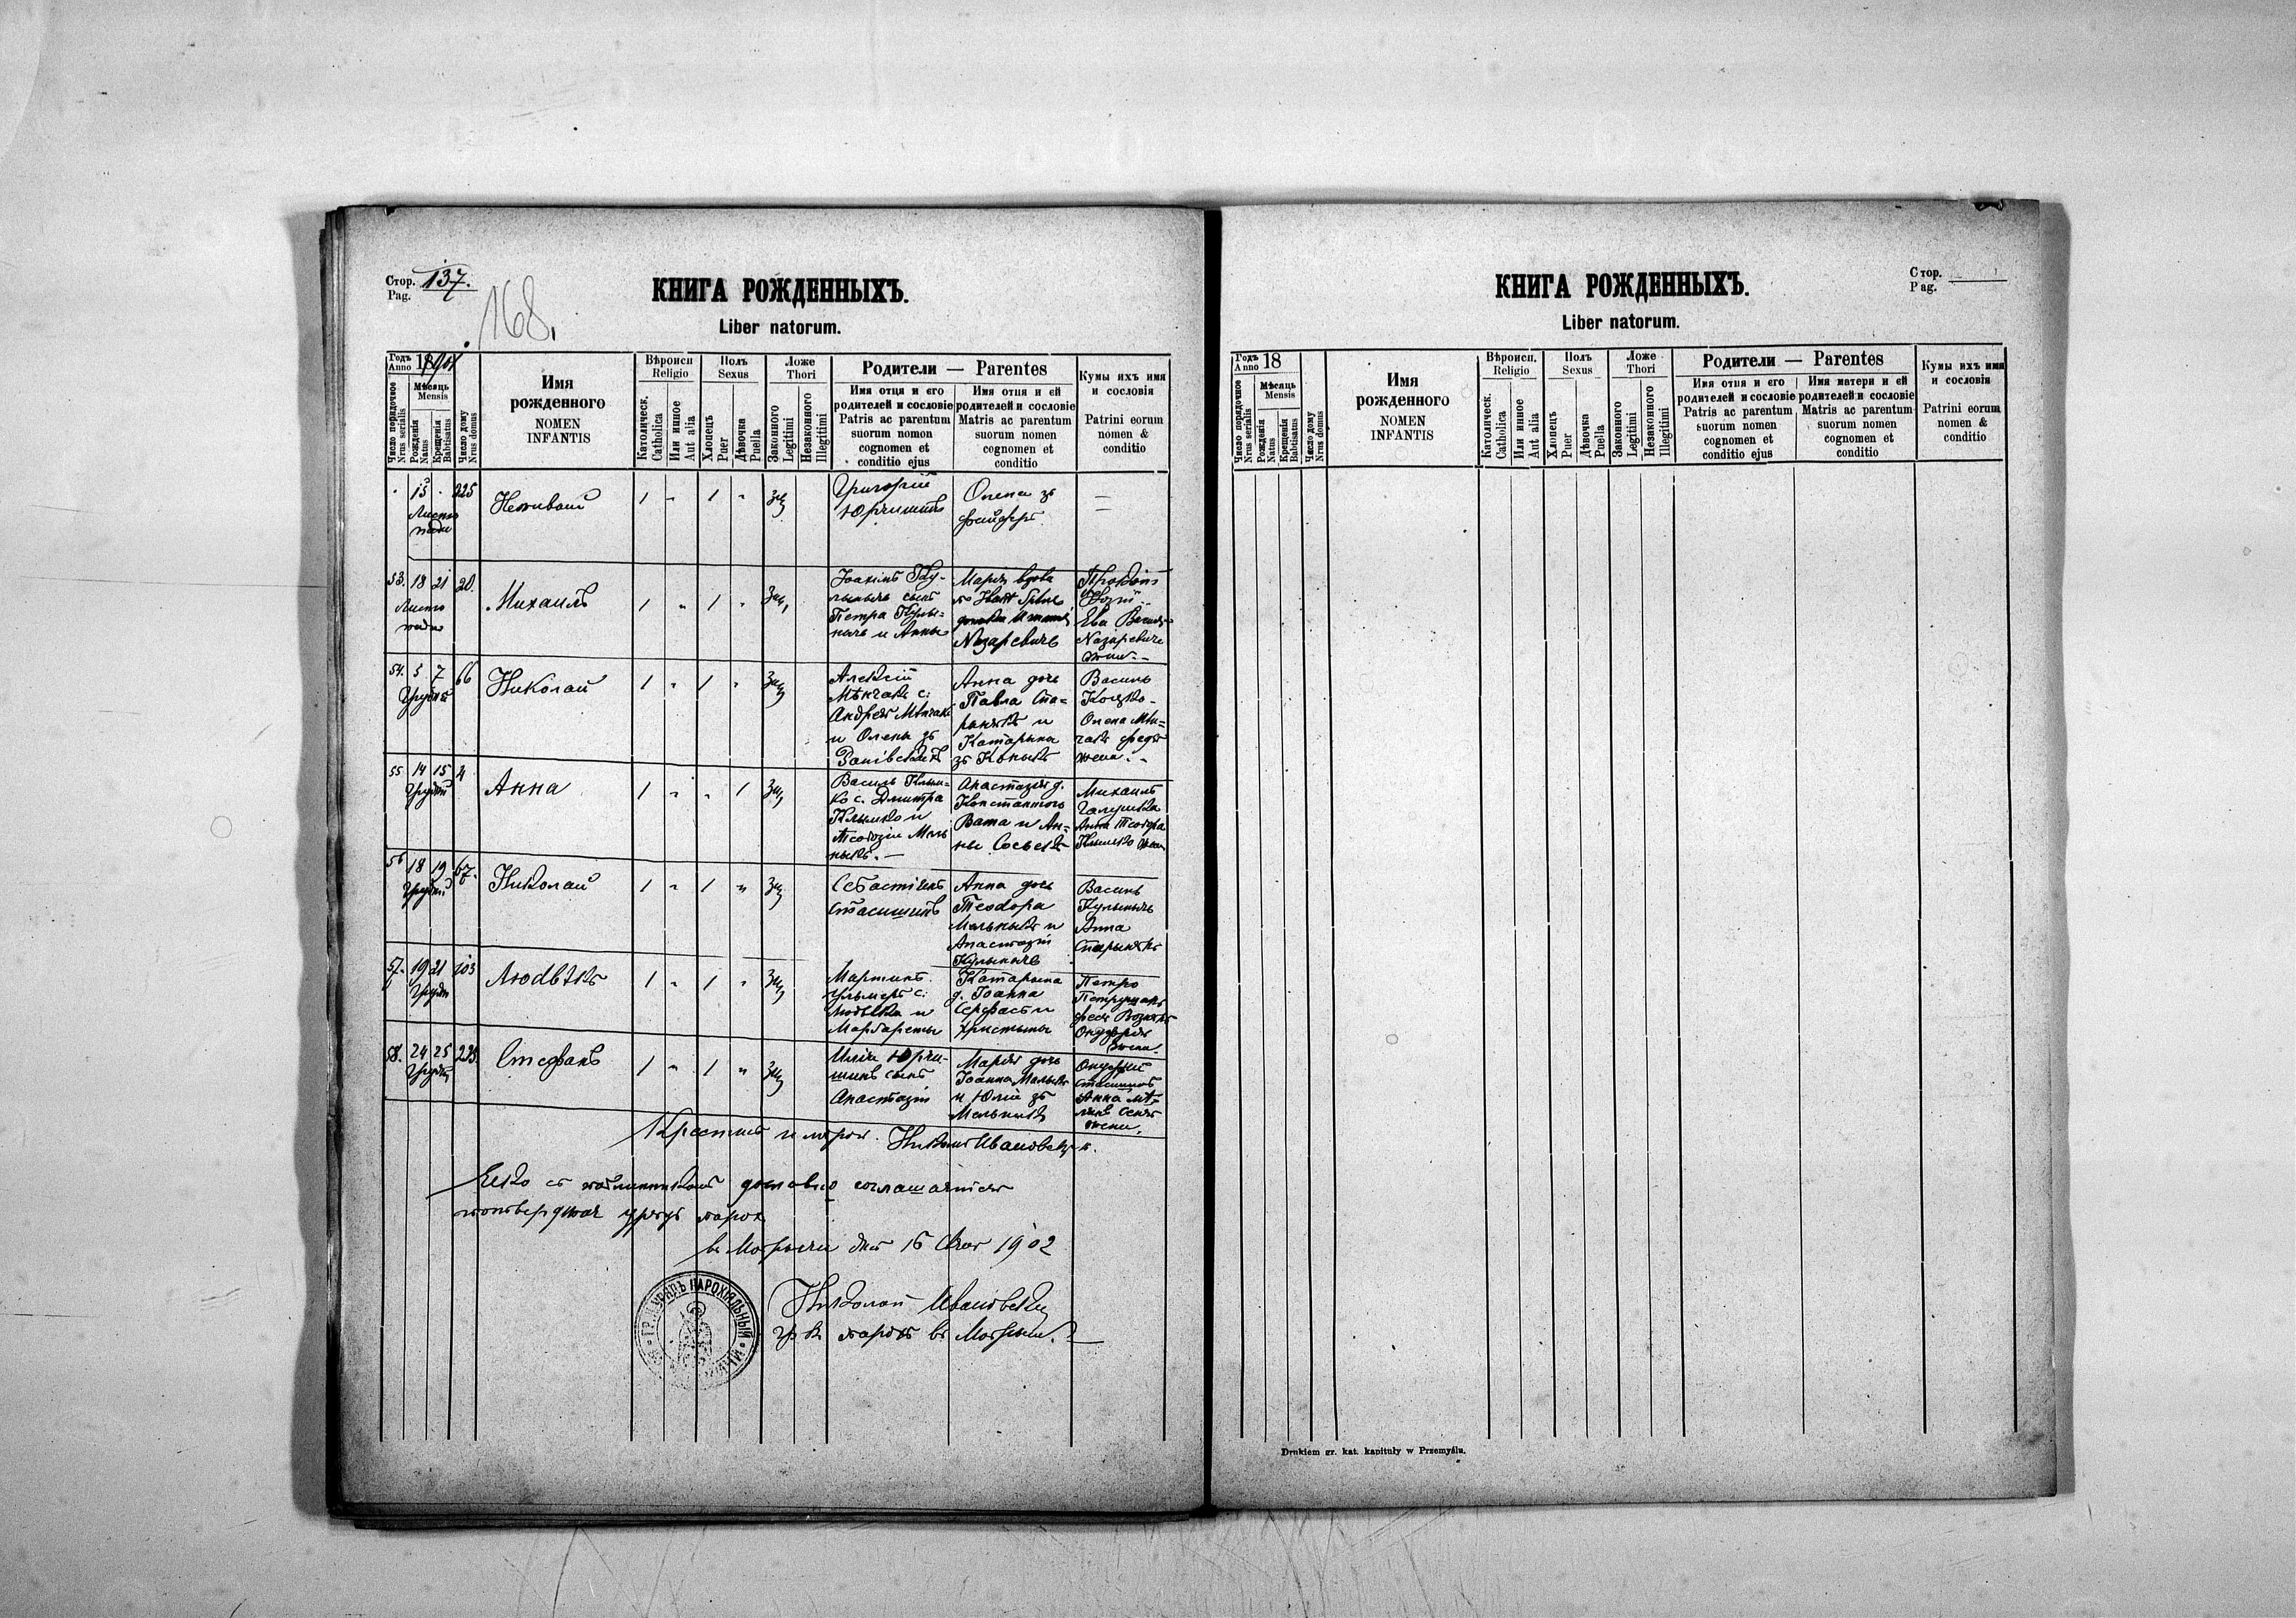 Стор. 137.
Pag.
168.
КНИГА РОЖДЕННЫХЪ.
Liber natorum.
Годъ 1901
Anno
Число порядочное
Nrus serialis
Мѣсяць
Mensis
Рожденія
Natus
Крещенія
Babtisatus
Число дому
Nrus domus
Имя
рожденного
NOMEN
INFANTIS
Вѣроисп
Religio
Католическ.
Catholica
Или инное
Aut alia
Полъ
Sexus
Хлопецъ
Puer
Дѣвочка
Puella
Ложе
Thori
Законного
Legitimi
Незаконного
Illegitimi
Родители — Parentes
Имя отця и его
родителей и сословіе
Patris ac parentum
suorum nomon
cognomen et
conditio ejus
Имя отця и ей
родителей и сословіе
Matris ac parentum
suorum nomen
cognomen et
conditio
Кумы ихъ имя
и сословія
Patrini eorum
nomen &
conditio
15 225
Листо
пада
Неживый
1 " 1 "
Григорій
Юрчишинъ
Олена зъ
53. 18 21 20.
Листо
пада
Михаилъ
1 " 1 "
Іоакимъ Ку-
лыничъ сынъ
Петра Кулы-
нычъ и Анны
Марія вдова
Назаревичъ
Ева
Назаревичъ
жена.
54. 5 7 66
Грудня
Николай
1 " 1 "
Алексій
Мѣнчакъ с:
Андрея Мѣнчакъ
и Олены зъ
Анна дочь
Павла Ста-
рыняк и
Катарына
зъ Коныкъ
Василь
Олена Мѣн-
чакъ федя
жена.
55 14 15 4
Грудня
Анна
1 " " 1
Василь Клым-
ко с. Дмитра
Клымко и
Теодозіи Мель
ныкъ. —
Анастазія д.
Константого
Вата и Ан-
ны
Михаилъ
Галушка
Анна Теодора
Клымко жена
56 18 19 67.
Грудня
Николай
1 " 1 "
Себастіянъ
Стасишинъ
Анна дочь
Теодора
Мельныкъ и
Анастазіи
Кулынычъ
Василь
Кулынычъ
Анна
Старынякъ
57. 19 21 103
Грудня
Людвѣкъ
1 " 1 "
Мартинъ
с:
Людвѣка и
Маргареты
Катарына
д. Іоанна
и
Христины
Петро
жена.
58. 24 25 225.
Грудня
Стефанъ
1 " 1 "
Илія Юрчи-
шинъ сынъ
Анастазіи
Марія дочь
Іоанна
и Юліи зъ
Мельныкъ
Онуфрій
Стасишинъ
Анна
жена.
Крестилъ и мѵров. Николай Ивановскій
дословно соглашается
потверджає урядъ парох.
дня 15 1902
ГР. УРЯДЪ ПАРОХІЯЛЬНЫЙ
Николай Ивановскій
гр к парохъ въ
КНИГА РОЖДЕННЫХЪ.
Liber natorum.
Стор.
Pag.
Годъ 18
Anno
Число порядочное
Nrus serialis
Мѣсяць
Mensis
Рожденія
Natus
Крещенія
Babtisatus
Число дому
Nrus domus
Имя
рожденного
NOMEN
INFANTIS
Вѣроисп.
Religio
Католическ.
Catholica
Или инное
Aut alia
Полъ
Sexus
Хлопецъ
Puer
Дѣвочка
Puella
Ложе
Thori
Законного
Legitimi
Незаконного
Illegitimi
Родители — Parentes
Имя отця и его
родителей и сословіе
Patris ac parentum
suorum nomen
cognomen et
conditio ejus
Имя матери и ей
родителей и сословіе
Matris ac parentum
suorum nomen
cognomen et
conditio
Кумы ихъ имя
и сословія
Patrini eorum
nomen &
conditio
Drukiem gr. kat. kapituły w Przemyślu.